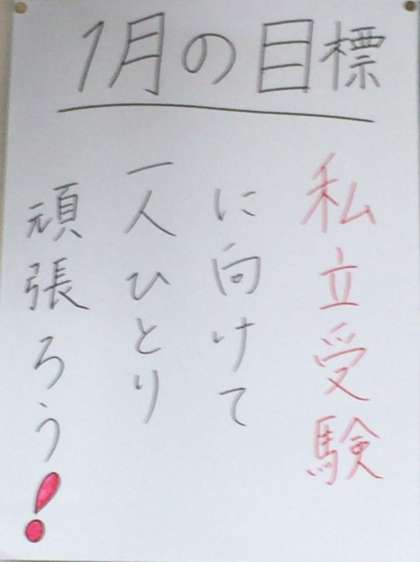 1月の目標
私立受験
に向けて
一人ひとり
頑張ろう!